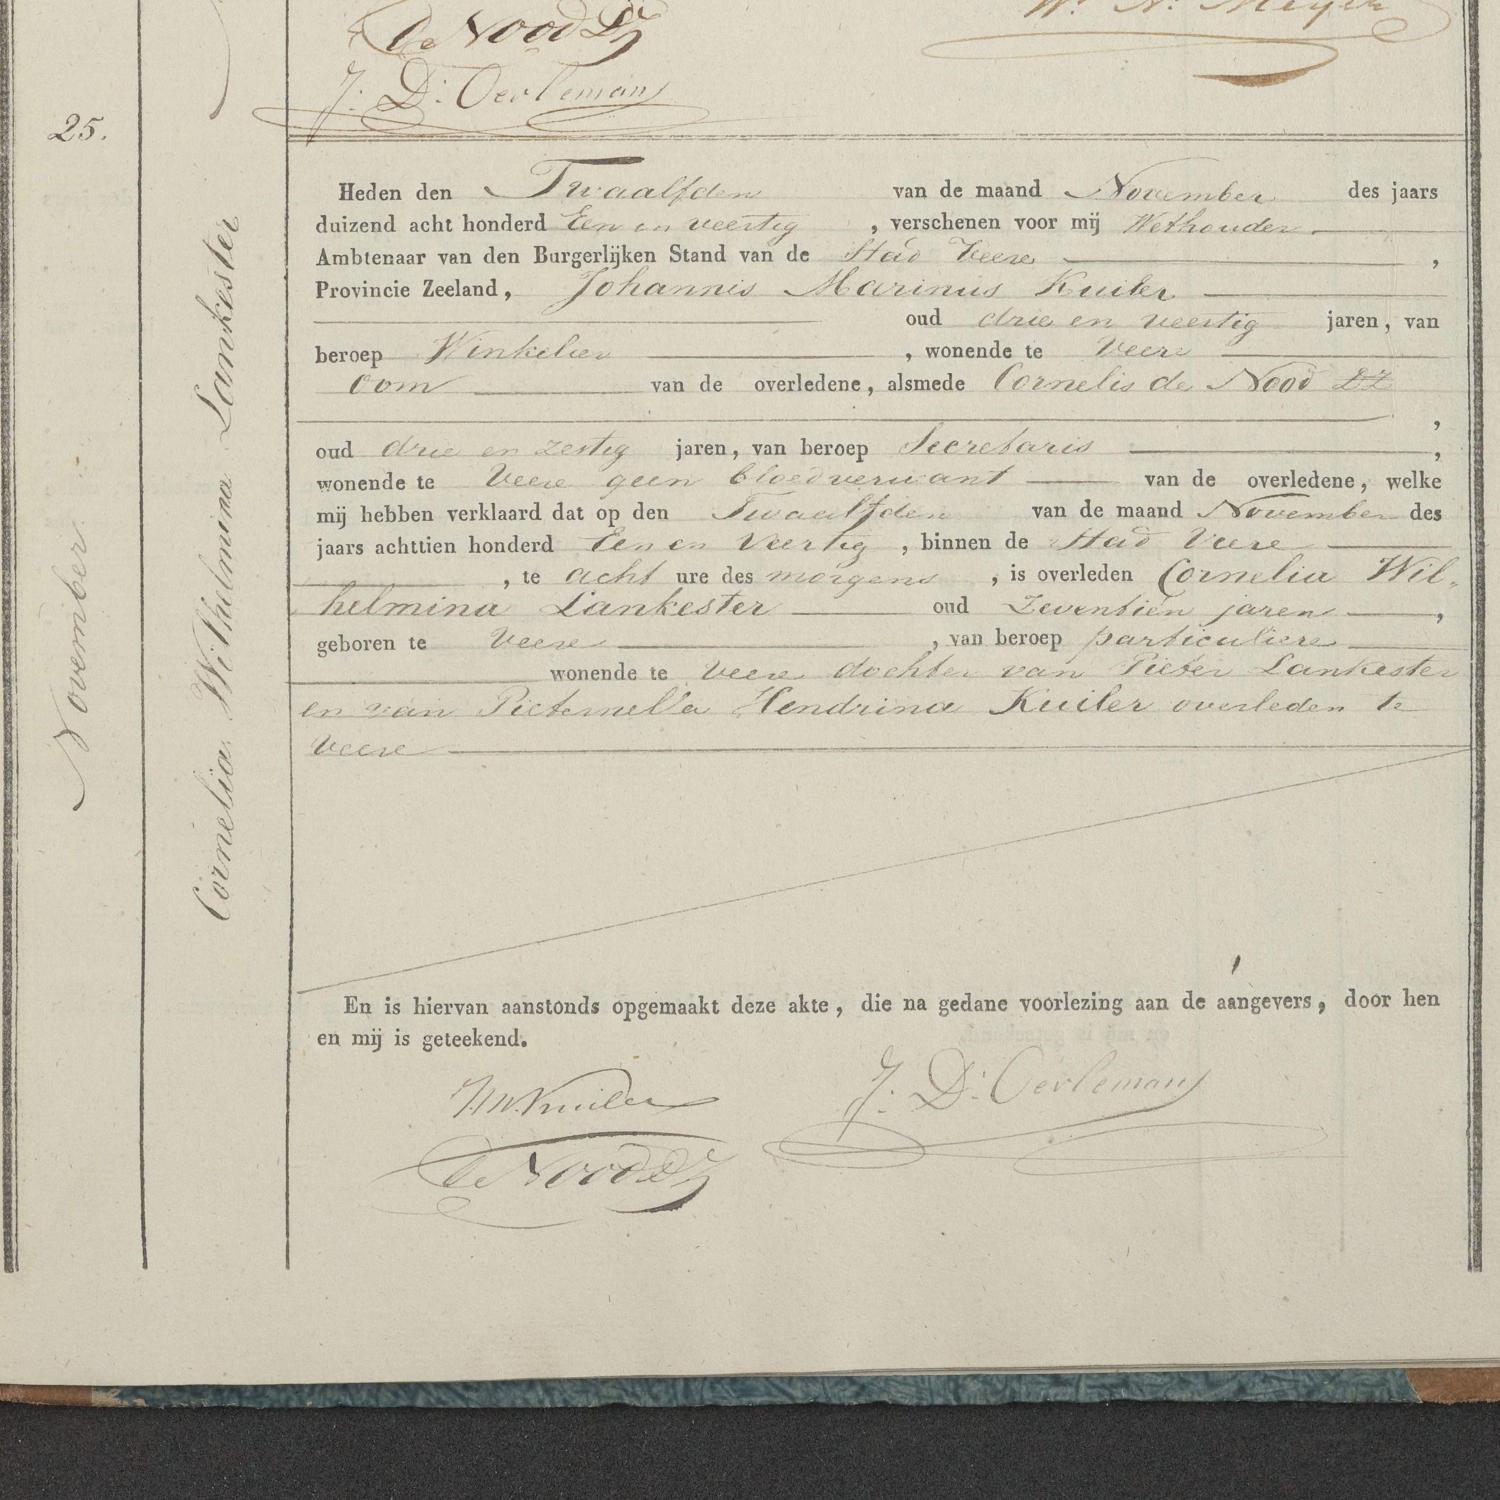 de Nood Dz
Wm. N. Meyer
J: D: Oerlemans
25.
November
Cornelia Wilhelmina Lankester
Heden den Twaalfden van de maand November des jaars
duizend acht honderd Een en veertig , verschenen voor mij Wethouder
Ambtenaar van den Burgerlijken Stand van de Stad Veere ,
Provincie Zeeland, Johannis Marinus Kuiler
oud drie en veertig jaren, van
beroep Winkelier , wonende te Veere
oom van de overledene, alsmede Cornelis de Nood DZ
,
oud drie en zestig jaren, van beroep Secretaris ,
wonende te Veere geen bloedverwant van de overledene, welke
mij hebben verklaard dat op den Twaalfden van de maand November des
jaars achttien honderd Een en Veertig , binnen de Stad Veere
, te acht ure des morgens , is overleden Cornelia Wil-
helmina Lankester oud Zeventien jaren ,
geboren te Veere , van beroep particuliere
wonende te Veere dochter van Pieter Lankester
en van Pieternella Hendrina Kuiler overleden te
Veere
En is hiervan aanstonds opgemaakt deze akte, die na gedane voorlezing aan de aangevers, door hen
en mij is geteekend.
J.M. Kuiler
J: D: Oerlemans
de Nood Dz